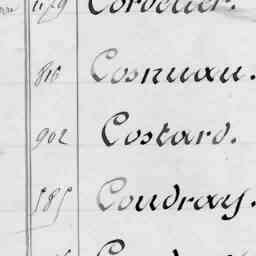 1179 Cordelier.
816 Cosnuau.
902 Costard.
585 Coudray.